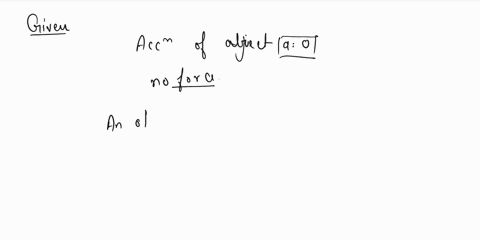 Given
Accⁿ of object a: 0
no force
An ol